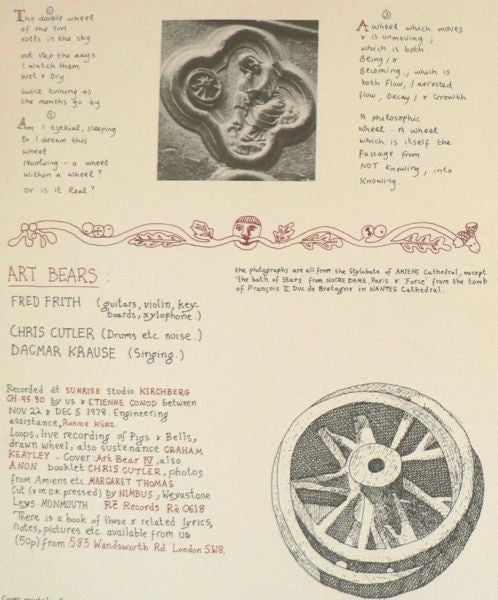 ①
The double wheel
of the son
rolls in the sky
out step the days
I watch them
wet & Dry
twice turning as
the months go by
②
Am I Ezekial, sleeping
Do I dream this
wheel
revolving - a wheel
within a wheel?
Or is it Real?
③
A wheel which moves
& is unmoving,
which is both
Being / &
Becoming, which is
both Flow, / arrested
flow, Decay / & Growth
A philosophic
Wheel - A wheel
which is itself the
Passage from
NOT Knowing, into
Knowing.
ART BEARS :
FRED FRITH (guitars, violin, key-
boards, xylophone.)
CHRIS CUTLER (Drums etc. noise.)
DAGMAR KRAUSE (Singing.)
the photographs are all from the Stylobate of AMIENS Cathedral, except
'the bath of Stars' from NOTRE DAME, Paris & 'Force' from the tomb
of François II Duc de Bretagne in NANTES Cathedral.
Recorded at SUNRISE Studio KIRCHBERG
CH.95.30 by us & ETIENNE CONOD between
NOV 22 & DEC 5 1978. Engineering
assistance, Ronnie Kürz
Loops, live recording of Pigs & Bells,
drawn wheel, also sustenance GRAHAM
KEATLEY - Cover Art Bear IV, also
ANON booklet CHRIS CUTLER, photos
from Amiens etc MARGARET THOMAS
Cut (& in U.K pressed) by NIMBUS, Wyastone
Leys MONMOUTH. Rē Records Rē 0618
There is a book of these & related lyrics,
notes, pictures etc available from us
(50p) from 583 Wandsworth Rd London S.W8.